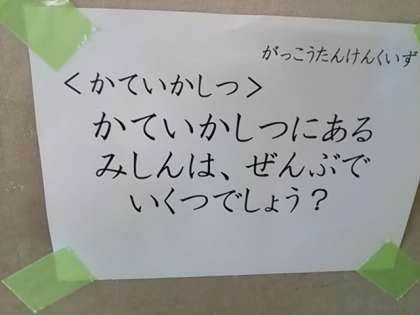 がっこうたんけんくいず
＜かていかしつ＞
かていかしつにある
みしんは、ぜんぶで
いくつでしょう？